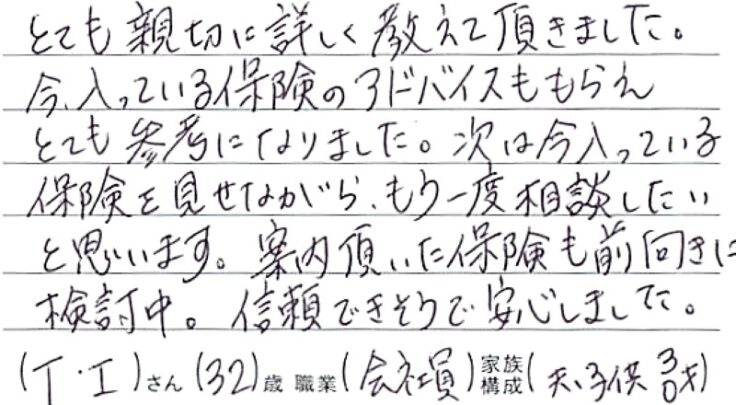 とても親切に詳しく教えて頂きました。
今、入っている保険のアドバイスももらえ
とても参考になりました。次は今入っている
保険を見せながら、もう一度相談したい
と思います。案内頂いた保険も前向きに
検討中。信頼できそうで安心しました。
(T・I)さん(32)歳 職業(会社員)家族構成(夫、子供 3才 0才)